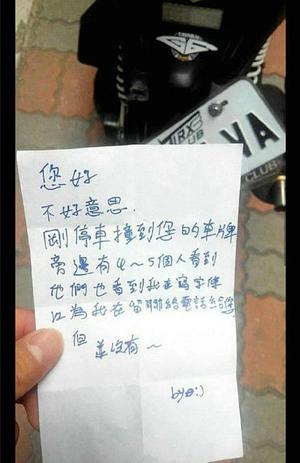 TRXC
CLUB
VA
CLUB
您好
不好意思.
剛停車撞到您的車牌
旁邊有4~5個人看到
他們也看到我在寫字條
以為我在留聯絡電話給您
但 並沒有~
by 8:)